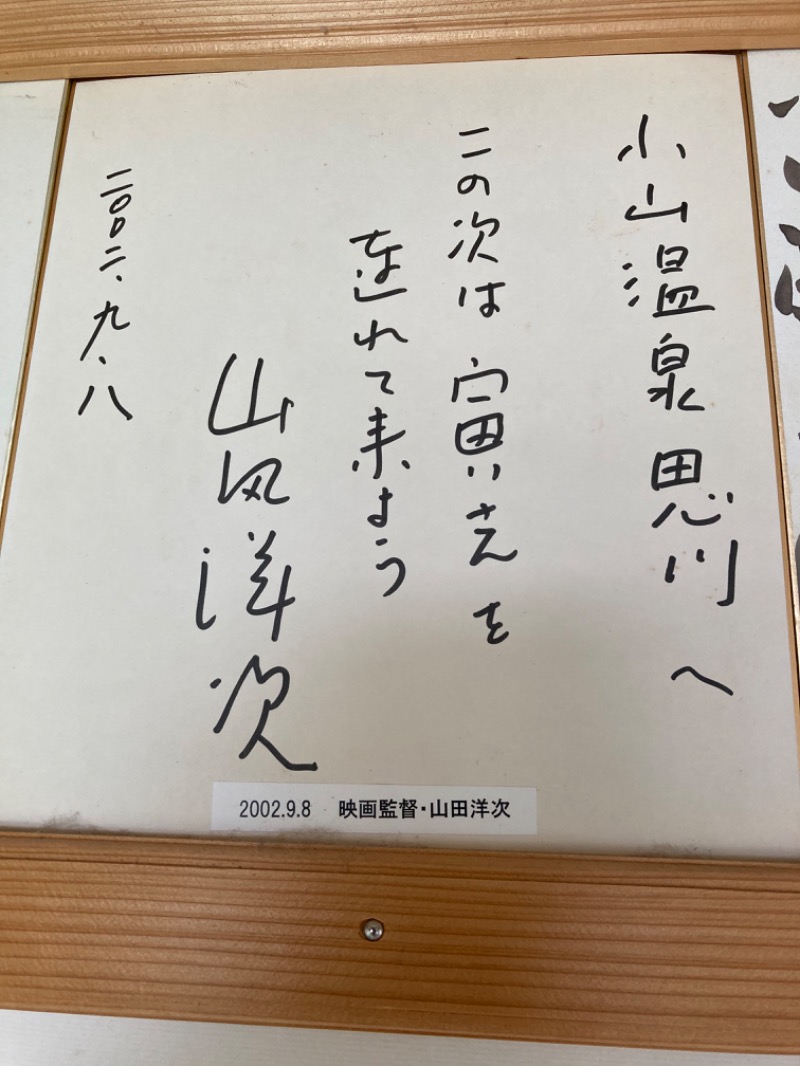 小山温泉思川へ
この次は寅さんを
連れて来よう
山田洋次
二〇〇二、九、八
2002.9.8 映画監督・山田洋次